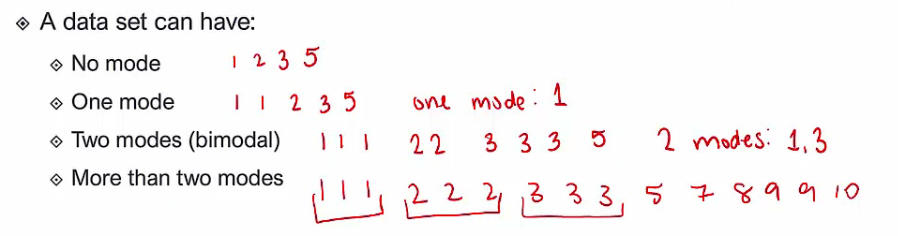 A data set can have:
No mode 1 2 3 5
One mode 1 1 2 3 5 one mode: 1
Two modes (bimodal) 1 1 1 2 2 3 3 3 5 2 modes: 1,3
More than two modes 1 1 1 2 2 2 3 3 3 5 7 8 9 9 10